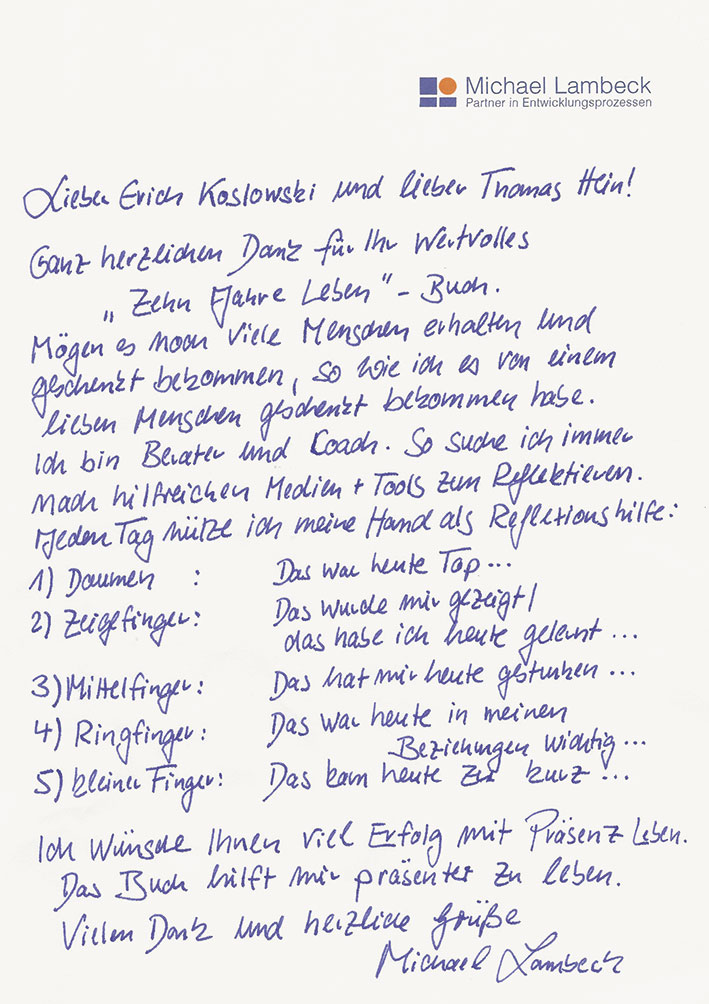 Michael Lambeck
Partner in Entwicklungsprozessen
Lieber Erich Koslowski und lieber Thomas Hein!
Ganz herzlichen Dank für Ihr wertvolles
„Zehn Jahre Leben" - Buch.
Mögen es noch viele Menschen erhalten und
geschenkt bekommen, so wie ich es von einem
lieben Menschen geschenkt bekommen habe.
Ich bin Berater und Coach. So suche ich immer
nach hilfreichen Medien + Tools zum Reflektieren.
Jeden Tag nütze ich meine Hand als Refletionshilfe:
1) Daumen : Das war heute Top...
2) Zeigefinger: Das wurde mir gezeigt /
das habe ich heute gelernt ...
3) Mittelfinger: Das hat mir heute gestunken ...
4) Ringfinger: Das war heute in meinen
Beziehungen wichtig ...
5) kleiner Finger: Das kam heute zu kurz ...
Ich wünsche Ihnen viel Erfolg mit Präsenz Leben.
Das Buch hilft mir präsenter zu leben.
Vielen Dank und herzliche Grüße
Michael Lambeck